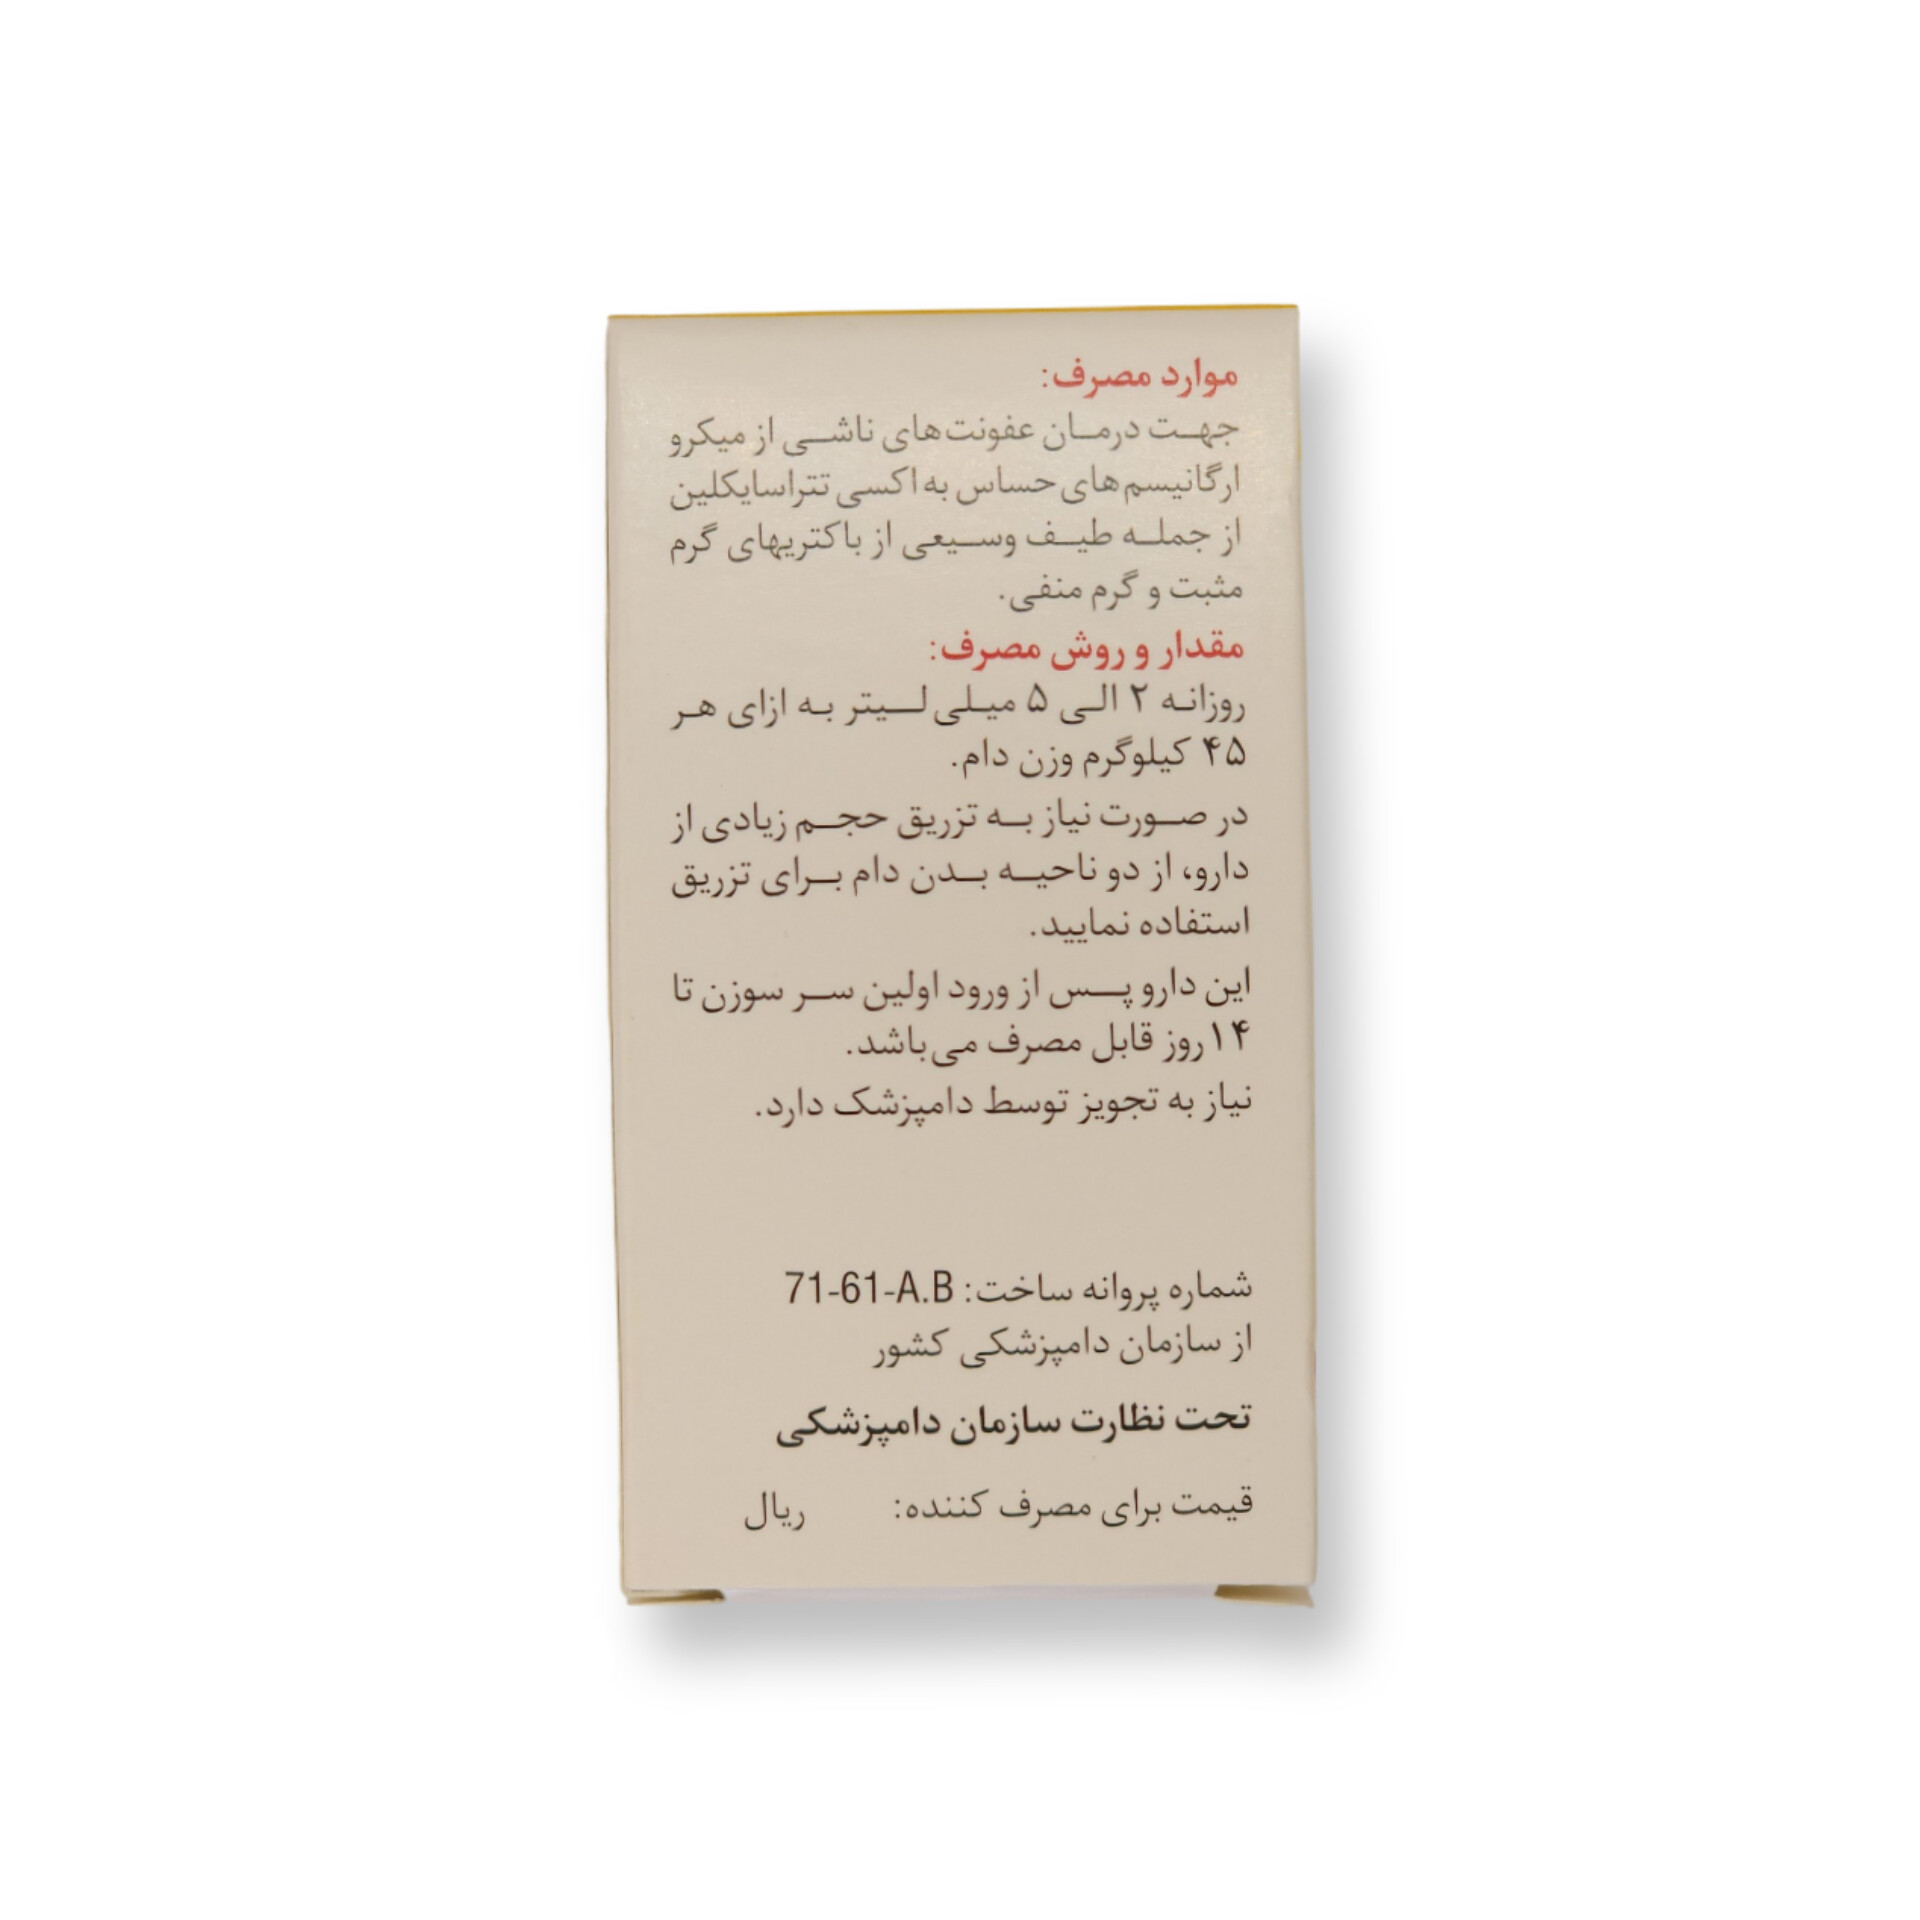 موارد مصرف:
جهت درمان عفونت‌های ناشی از میکرو
ارگانیسم‌های حساس به اکسی تتراسایکلین
از جمله طیف وسیعی از باکتریهای گرم
مثبت و گرم منفی.
مقدار و روش مصرف:
روزانه ۲ الی ۵ میلی لیتر به ازای هر
۴۵ کیلوگرم وزن دام.
در صورت نیاز به تزریق حجم زیادی از
دارو، از دو ناحیه بدن دام برای تزریق
استفاده نمایید.
این دارو پس از ورود اولین سر سوزن تا
۱۴ روز قابل مصرف می‌باشد.
نیاز به تجویز توسط دامپزشک دارد.
شماره پروانه ساخت: 71-61-A.B
از سازمان دامپزشکی کشور
تحت نظارت سازمان دامپزشکی
قیمت برای مصرف کننده: ریال